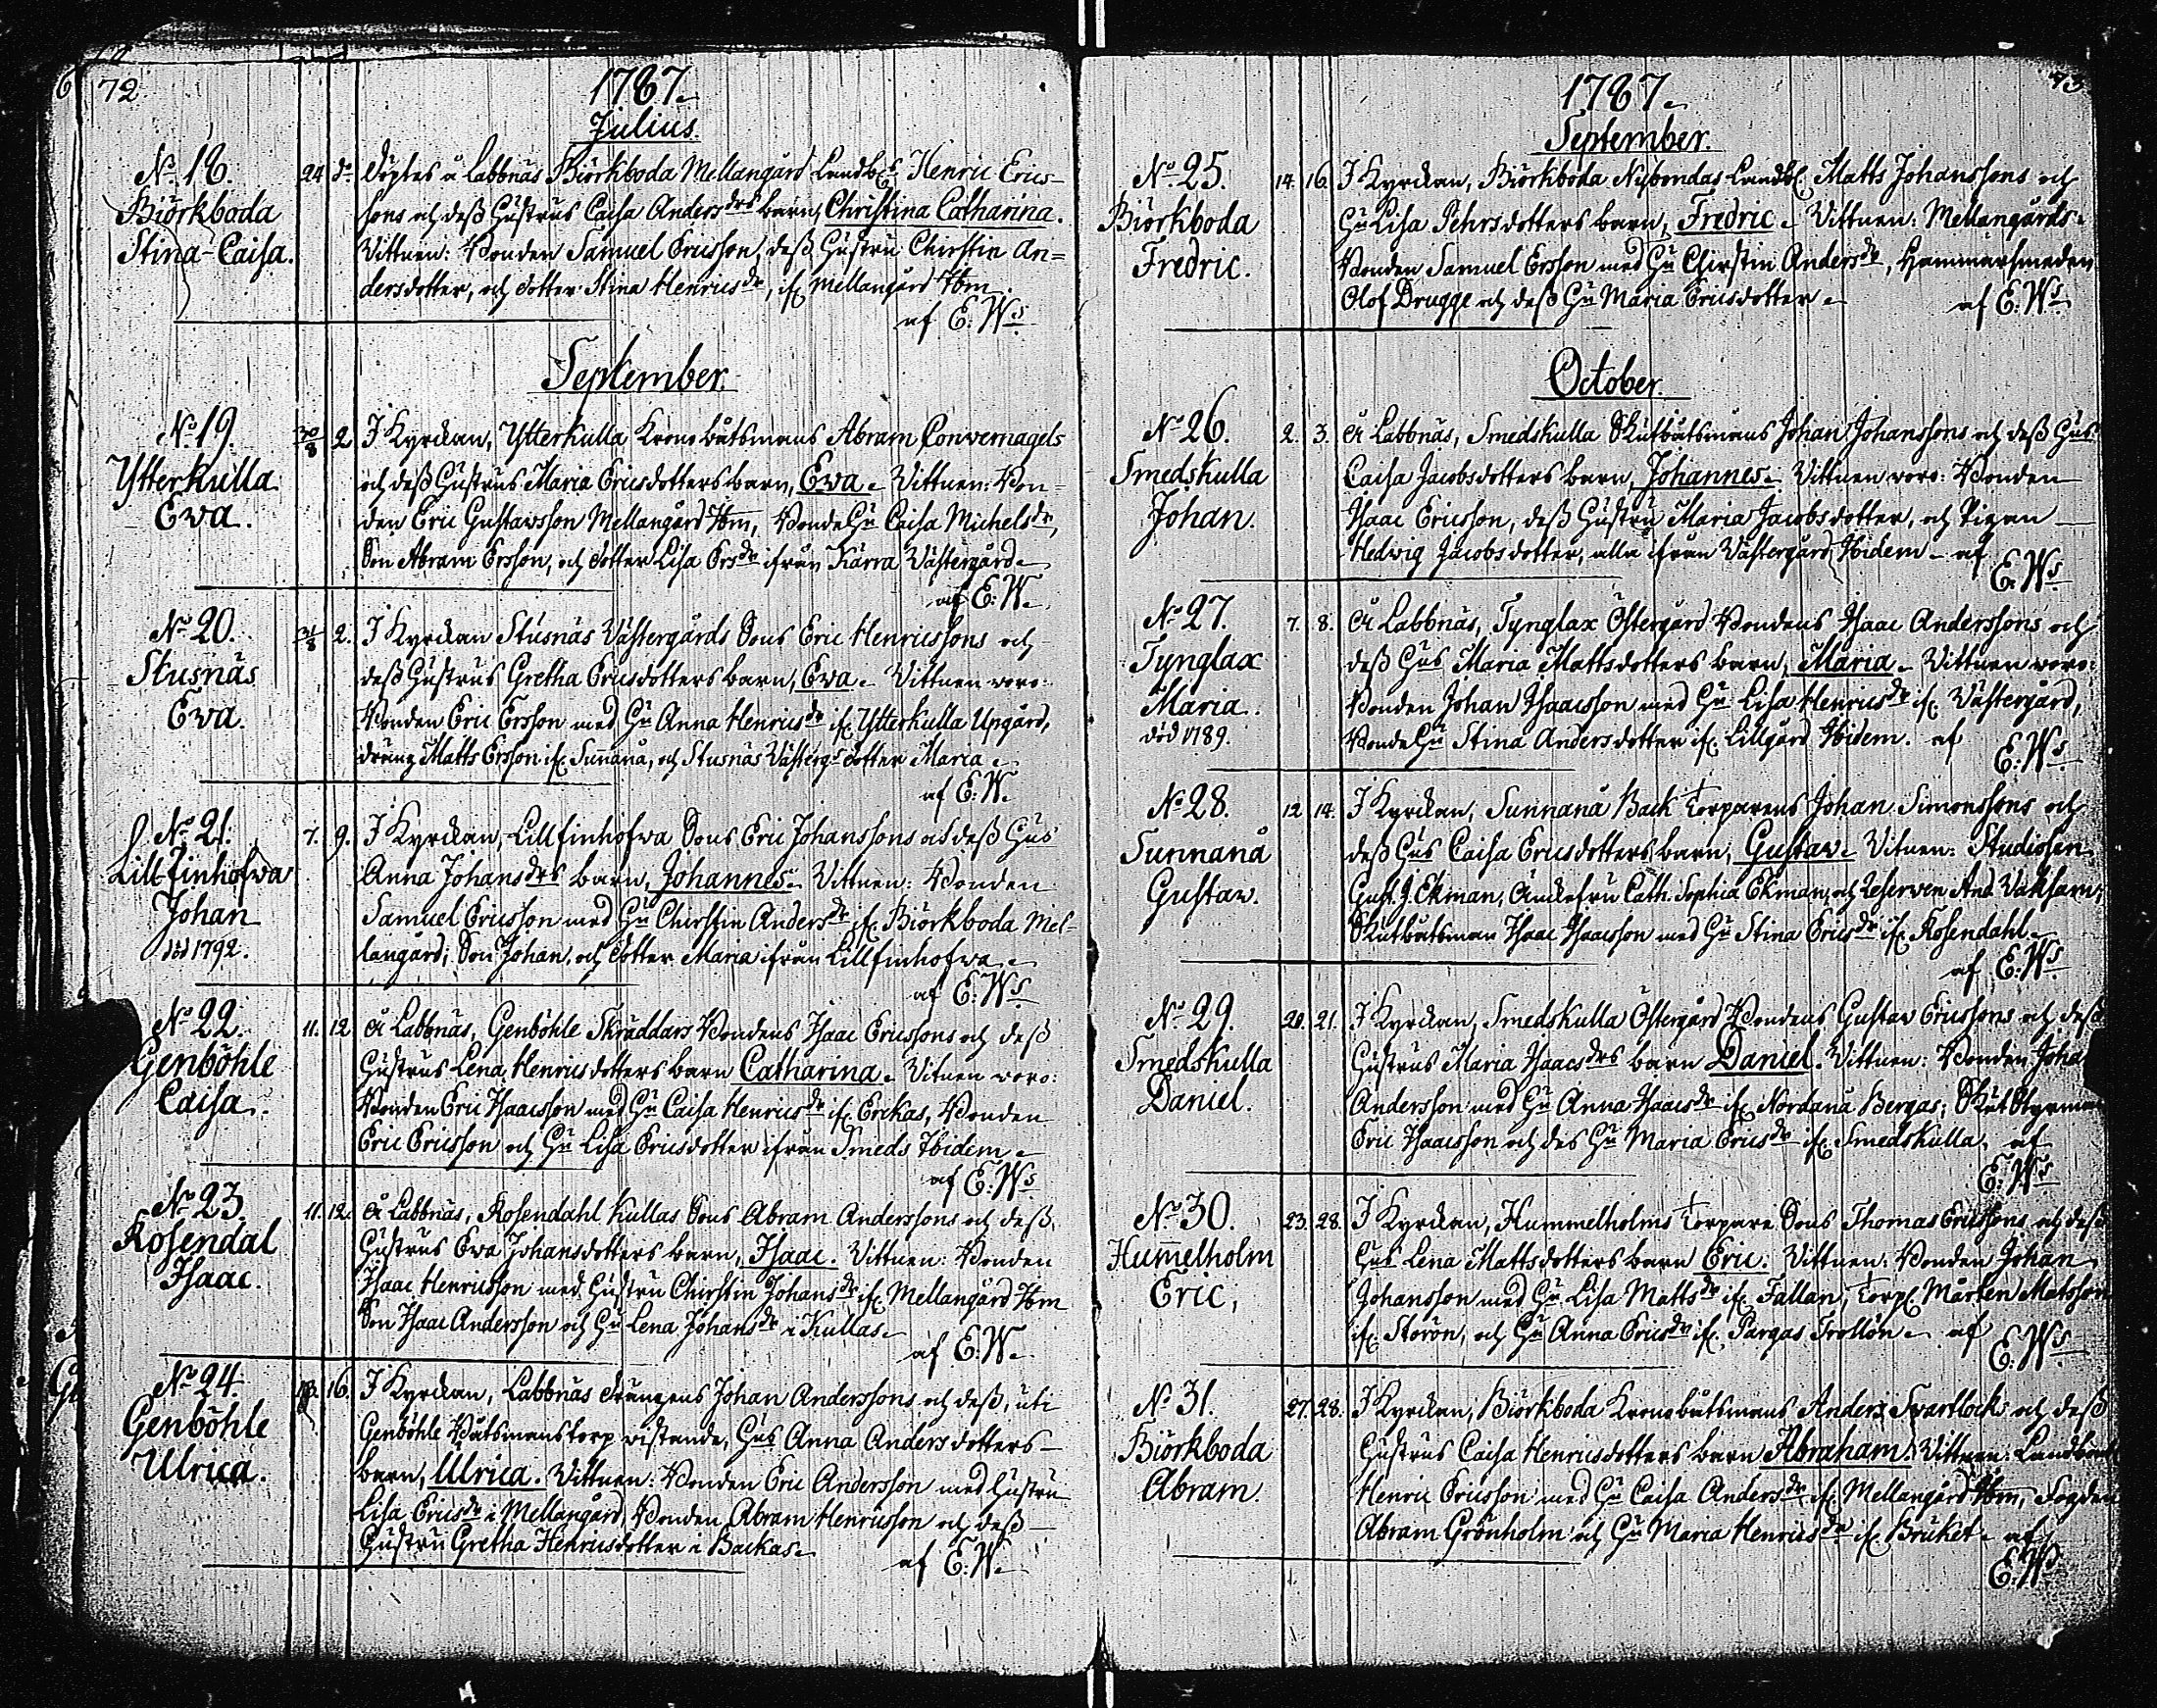 72
1787.
Julius.
No. 18.
Biörkboda
Stina-Caisa.
24 do Döptes å Labbnäs Biörkboda Mellangård Landb. Henric Erics-
sons och dess Hustrus Caisa Andersdrs barn, Christina Catharina.
Vittnen: Bonden Samuel Ericsson, dess Hustru Chirstin An=
dersdotter, och dotter Stina Henricsdr, if. Mellangård Ibm.
af E: Ws
September.
No. 19.
Ytterkulla
Ewa.
30/8 2 I Kyrckan, Ytterkulla Krono båtsmans Abram Convernagels
och dess Hustrus Maria Ericsdotters barn, Ewa. Vittnen: Bon=
den Eric Gustavsson Mellangård Ibm, Bonde Hu Caisa Michelsdr,
Son Abram Ersson, och dotter Lisa Ersdr ifrån Kärra Västergård
af E: W.
No. 20.
Stusnäs
Ewa.
31/8 2. I Kyrckan Stusnäs Västergårds Sons Eric Henricssons och
dess Hustrus Gretha Ericsdotters barn, Ewa. Vittnen woro:
Bonden Eric Ersson med Hu Anna Henricsdr if. Ytterkulla Upgård,
dräng Matts Ersson if. Sunnanå, och Stusnäs Västergs dotter Maria
af E: W.
No. 21.
Lill-Finhofwa
Johan
död 1792.
7. 9. I Kyrckan, Lillfinhofwa Sons Eric Johanssons och dess Hus
Anna Johansdrs barn, Johannes. Vittnen: Bonden
Samuel Ericsson med Hu Chirstin Andersdr if. Biörkboda Mel-
langård; Son Johan, och dotter Maria ifrån Lillfinhofwa
af E: Ws
No. 22.
Genböhle
Caisa.
11. 12. Å Labbnäs, Genböhle Skräddars Bondens Isaac Ericssons och dess
Hustrus Lena Henricsdotters barn Catharina. Vitnen woro:
Bonden Eric Isaacsson med Hu Caisa Henricsdr if. Erikas, Bonden
Eric Ericsson och Hu Lisa Ericsdotter ifrån Smeds Ibidem
af E: Ws
No. 23
Rosendal
Isaac.
11. 12. Å Labbnäs, Rosendahl Kullas Sons Abram Anderssons och dess
Hustrus Ewa Johansdotters barn, Isaac. Vittnen: Bonden
Isaac Henricsson med Hustru Chirstin Johansdr if. Mellangård Ibm
Son Isaac Andersson och Hu Lena Johansdr i Kullas
af E: W.
No. 24.
Genböhle
Ulrica.
13. 16. I Kyrckan, Labbnäs drängens Johan Anderssons och dess, uti
Genböhle Båtsmanstorp vistande, Hus Anna Andersdotters
barn, Ulrica. Vittnen: Bonden Eric Andersson med Hustru
Lisa Ericsdr i Mellangård, Bonden Abram Henricsson och dess
Hustru Gretha Henricsdotter i Backas.
af E: W.
73
1787.
September.
No. 25.
Biörkboda
Fredric.
14. 16. I Kyrckan, Biörkboda Nybondas Landb. Matts Johanssons och
Hu Lisa Pehrsdotters barn, Fredric. Vittnen: Mellangårds
Bonden Samuel Ersson med Hu Chirstin Andersdr, Hammarsmeden
Olof Drugge och dess Hu Maria Ericsdotter
af E: Ws
October.
No. 26.
Smedskulla
Johan.
2. 3. Å Labbnäs, Smedskulla Skutbåtsmans Johan Johanssons och dess Hus
Caisa Jacobsdotters barn, Johannes. Vittnen woro: Bonden
Isaac Ericsson, dess Hustru Maria Jacobsdotter, och Pigan
Hedwig Jacobsdotter, alla ifrån Västergård Ibidem. af
E: Ws
No. 27.
Tynglax
Maria.
död 1789.
7. 8. Å Labbnäs, Tynglax Östergård Bondens Isaac Anderssons och
dess Hus Maria Mattsdotters barn, Maria. Vittnen woro:
Bonden Johan Isaacsson med Hu Lisa Henricsdr if. Västergård,
Bonde Hu Stina Andersdotter if. Lillgård Ibidem. af
E: Ws
No. 28.
Sunnanå
Gustav.
12 14. I Kyrckan, Sunnanå Back Torparens Johan Simonssons och
dess Hus Caisa Ericsdotters barn, Gustav. Vitnen: Studiosen
Gust. J. Ekman, Änckefru Cath. Sophia Ekman, och Reserven And. Vaksam;
Skutbåtsman Isaac Isaacsson med Hu Stina Ericsdr if. Rosendahl
af E: Ws
No. 29.
Smedskulla
Daniel.
20. 21. I Kyrckan, Smedskulla Östergård Bondens Gustav Ericssons och dess
Hustrus Maria Isaacsdrs barn Daniel. Vittnen: Bonden Joha
Andersson med Hu Anna Isaacsdr if. Nordanå Bergas; Skut Styrman
Eric Isaacsson och des Hu Maria Ericsdr if. Smedskulla. af
E: Ws
No. 30.
Hum̅elholm
Eric,
23. 28. I Kyrckan, Hummelholms Torpare Sons Thomas Ericssons och dess
Hus Lena Mattsdotters barn Eric. Vittnen: Bonden Johan
Johansson med Hu Lisa Mattsdr if. Fallan, Torp. Mårten Matsson
if. Storön, och Hu Anna Ericsdr if. Pargas Trollön. af
E: Ws
No. 31.
Biörkboda
Abram.
27. 28. I Kyrckan, Biörkboda Kronobåtsmans Anders Svartlocks och dess
Hustrus Caisa Henricsdotters barn Abraham. Vittnen: Landbond
Henric Ericsson med Hu Caisa Andersdr if. Mellangård Ibm, Fogden
Abram Grönholm och Hu Maria Henricsdr if. Bruket. af
E: Ws